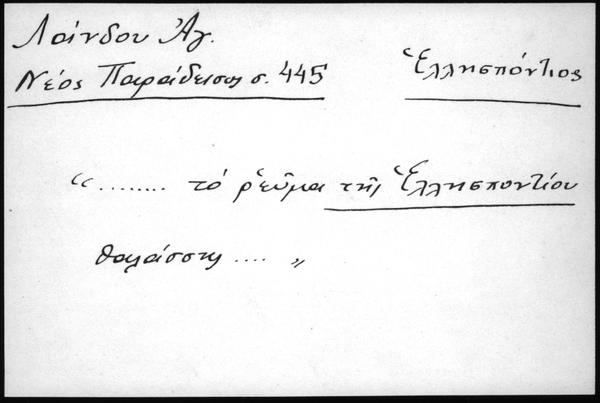 Λάνδου Ἀγ.
Νέος Παράδεισος σ. 445
Ἑλλησπόντιος
“ ........ τό ῥεῦμα τῆς Ἑλλησποντίου
θαλάσσης .... „